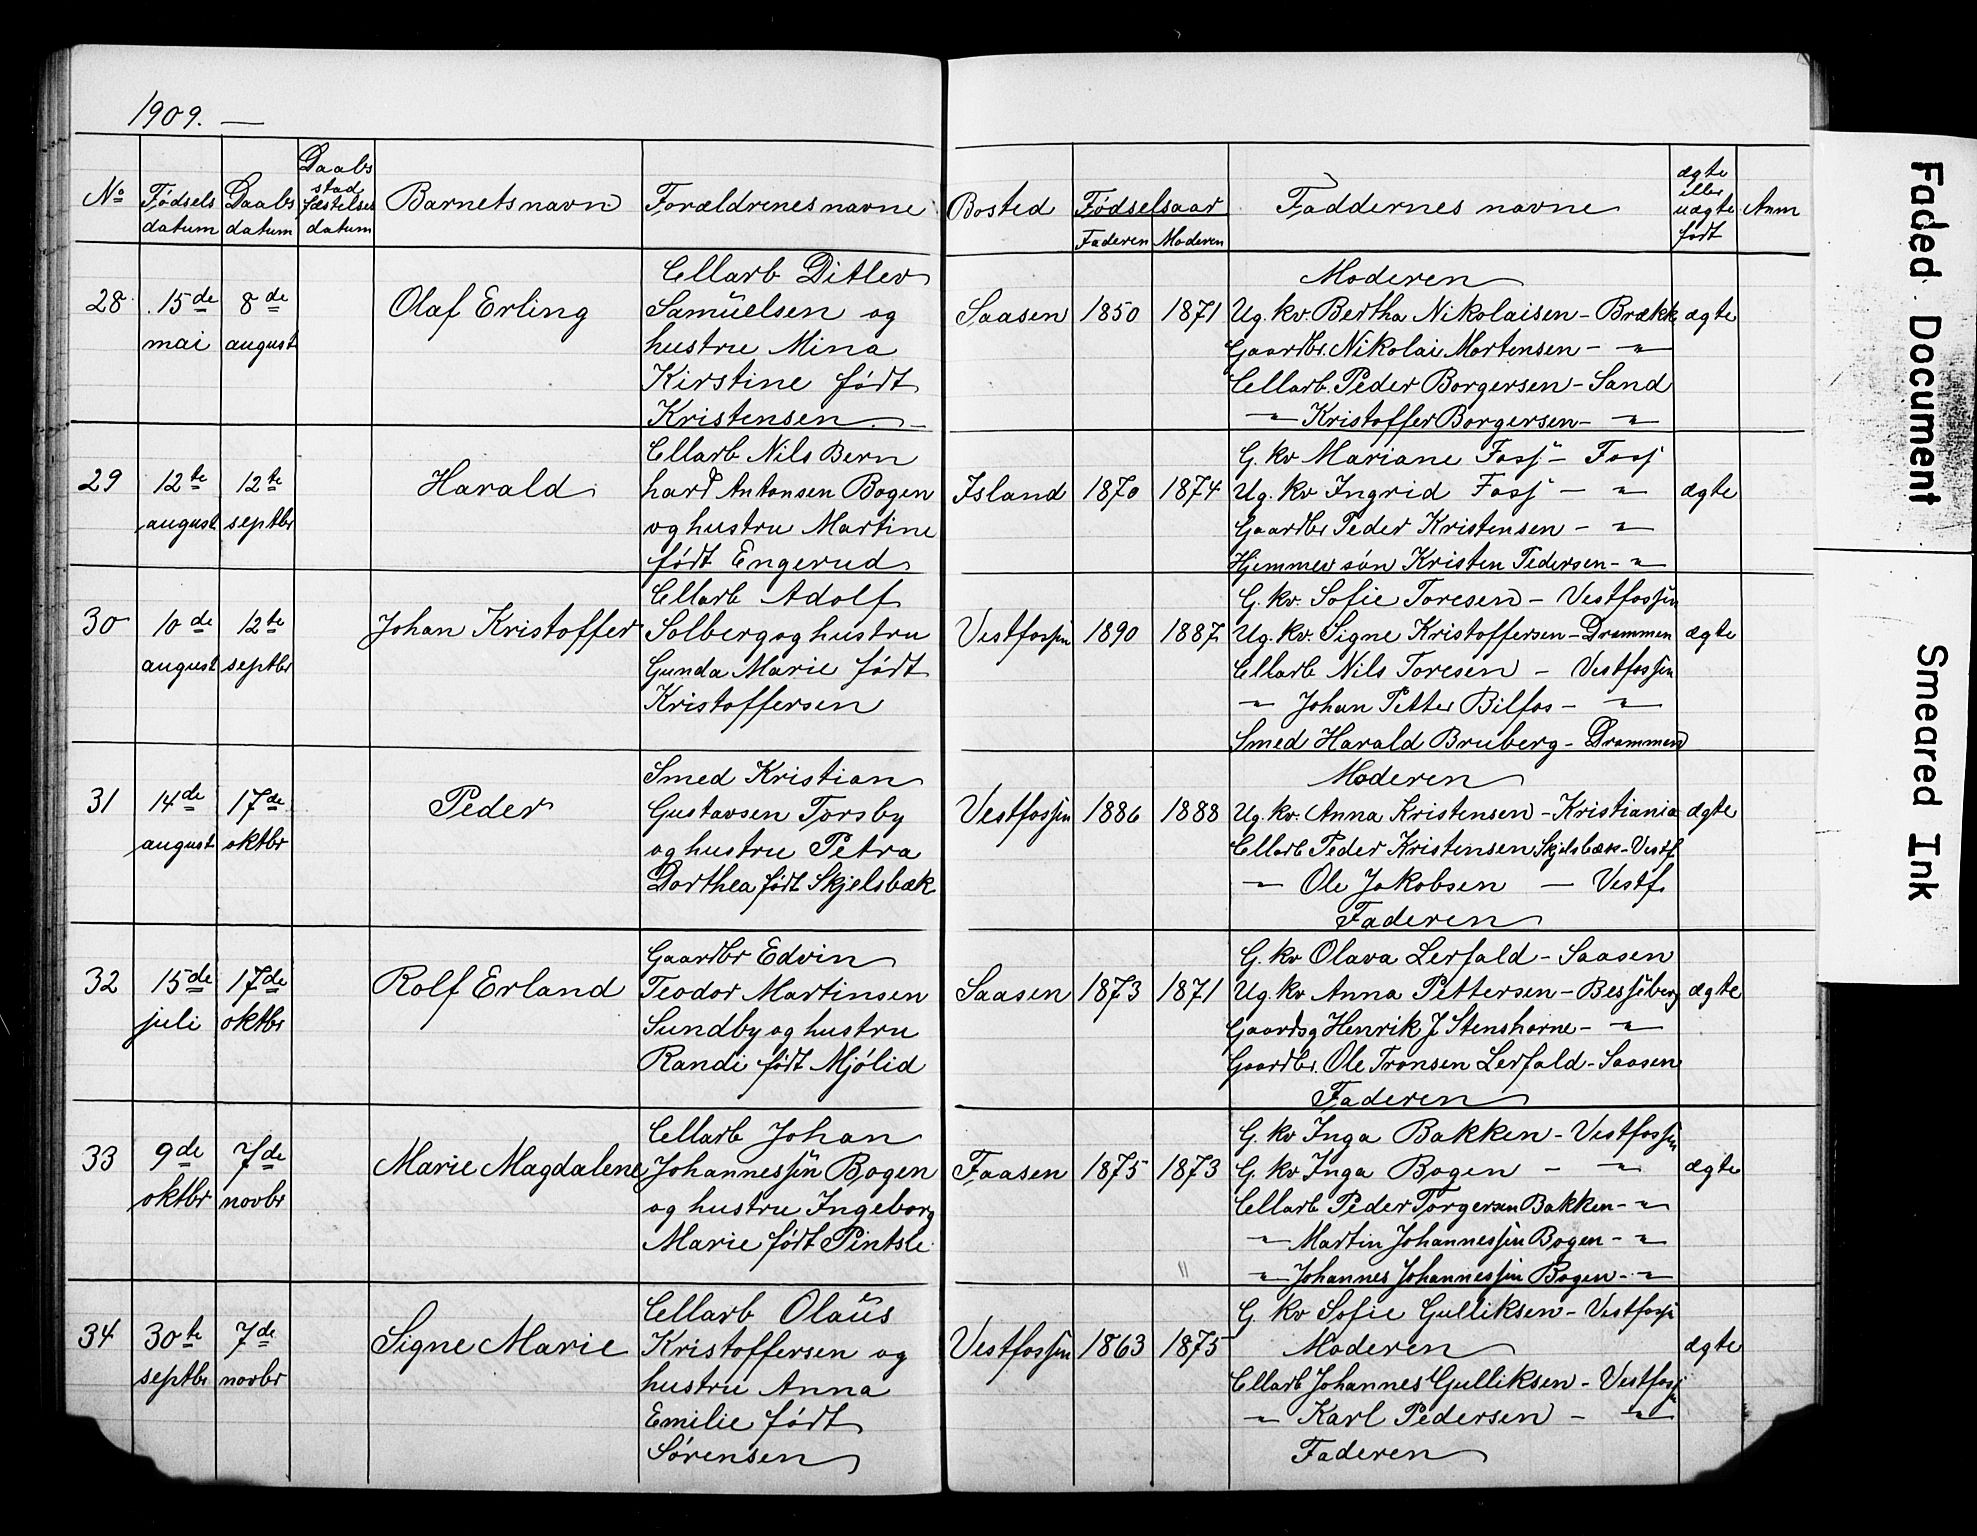 1909. —
No
Fødsels datum
Daabs datum
Daabs stadfæstelses datum
Barnets navn
Forældrenes navne
Bosted
Fødselsaar
Faderen
Moderen
Faddernes navne
ægte eller uægte født
Anm
28
15de mai
8de august
Olaf Erling
Cellarb Ditlev
Samŭelsen og
hustru Mina
Kirstine født
Kristensen. –
Saasen
1850
1871
Moderen
Ug. kv. Bertha Nikolaisen – Brækk
Gaardbr. Nikolai Mortensen – "
Cellarb. Peder Borgersen – Sand
" Kristoffer Borgersen – "
ægte
29
12te august
12te septbr
Harald
Cellarb Nils Bern
hard Antonsen Bogen
og hustru Martine
født Engerud
Island
1870
1874
G. kv Mariane Fosj – Fosj
Ug. kv Ingrid Fosj – "
Gaardbr Peder Kristensen – "
Hjemmev søn Kristen Pedersen – "
ægte
30
10de august
12te septbr
Johan Kristoffer
Cellarb Adolf
Solberg og hustru
Gunda Marie født
Kristoffersen
Vestfossen
1890
1887
G. kv. Sofie Toresen – Vestfossen
Ug. kv. Signe Kristoffersen – Drammen
Cellarb Nils Toresen – Vestfossen
" Johan Petter Bilfos – "
Smed Harald Bruberg – Drammen
ægte
31
14de august
17de oktbr
Peder
Smed Kristian
Gustavsen Torsby
og hustru Petra
Dorthea født Skjelsbæk
Vestfossen
1886
1888
Moderen
Ug. kv. Anna Kristensen – Kristiania
Cellarb Peder Kristensen Skjelsbæk – Vestf
" Ole Jakobsen — Vestf.
Faderen
ægte
32
15de juli
17de oktbr
Rolf Erland
Gaardbr Edvin
Teodor Martinsen
Sundby og hustru
Randi født Mjølid
Saasen
1873
1871
G. kv Olava Lerfald – Saasen
Ug. kv Anna Pettersen – Bessiberg
Gaardsg Henrik J Stenshorne – "
Gaardbr. Ole Tronsen Lerfald – Saasen
Faderen
ægte
33
9de oktbr
7de novbr
Marie Magdalene
Cellarb Johan
Johannessen Bogen
og hustru Ingeborg
Marie født Pintsle.
Faasen
1875
1873
G. kv Inga Bakken – Vestfossen
G. kv Inga Bogen – "
Cellarb Peder Torgersen Bakken – "
" Martin Johannessen Bogen – "
" Johannes Johannessen Bogen – "
ægte
34
30te septbr
7de novbr
Signe Marie
Cellarb Olaŭs
Kristoffersen og
hustru Anna
Emilie født
Sørensen
Vestfossen
1863
1875
G kv Sofie Gulliksen – Vestfoss
Moderen
Cellarb Johannes Gulliksen – Vestfossen
" Karl Pedersen – "
Faderen
ægte
Faded Document
Smeared Ink